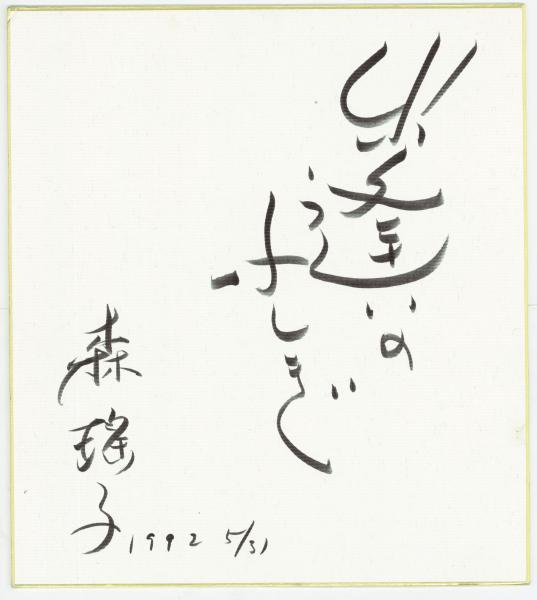 出逢いの
ふしぎ
森瑤子
1992 5/31